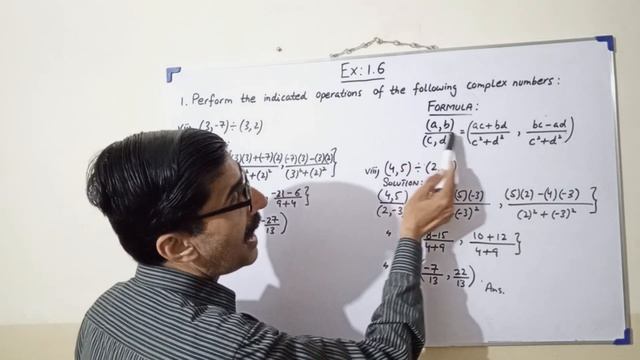 Ex: 1.6
1. Perform the indicated operations of the following complex numbers:
FORMULA:
(a, b)/(c, d = (ac+bd/c²+d² , bc-ad/c²+d²)
(3,-7) ÷ (3,2)
(3)+(-7)(2)/+(2)² , (-7)(3)-(3)(2)/(3)²+(2)²}
, -21-6/9+4}
-27/13)
viii) (4,5) ÷ (2
SOLUTION:
(4,5)/(2,-3 (5)(-3)/(-3)² , (5)(2)-(4)(-3)/(2)²+(-3)²}
8-15/4+9 , 10+12/4+9}
-7/13 , 22/13) . Ans.